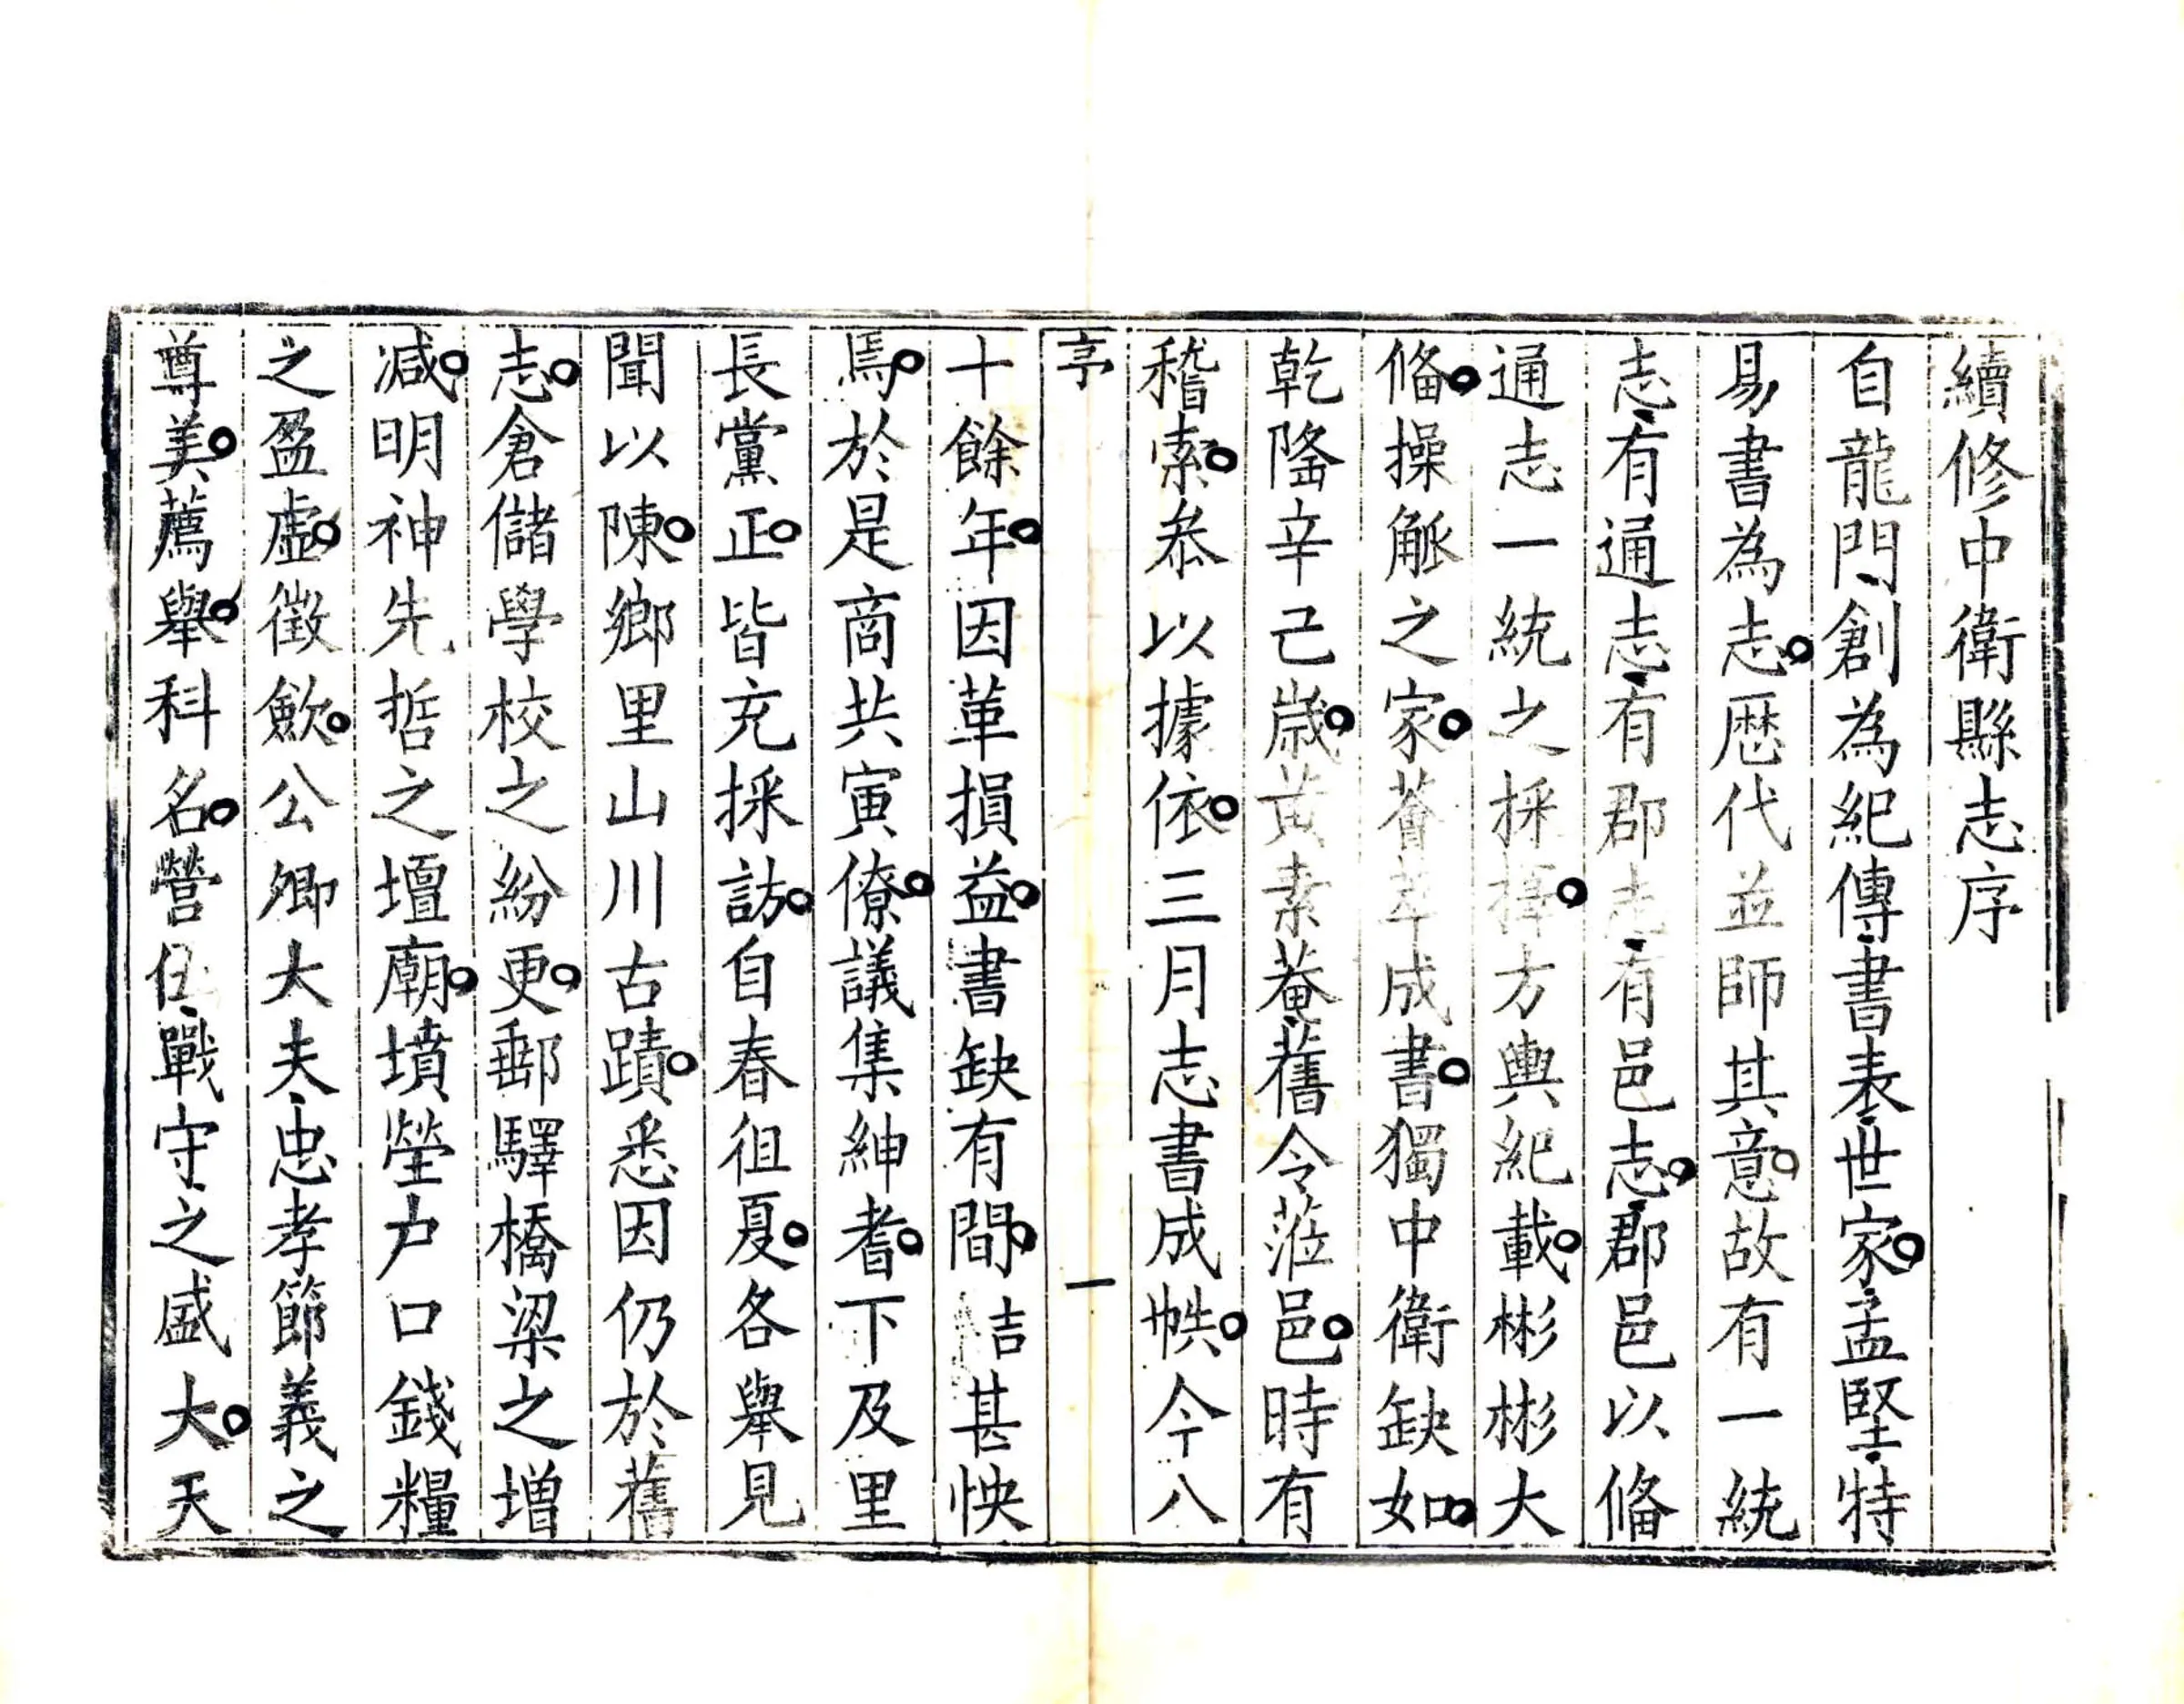 續修中衛縣志序
自龍門創為紀傳書表世家孟堅特
易書為志歴代並師其意故有一統
志有通志有郡志有邑志郡邑以俻
通志一統之採擇方輿紀載彬彬大
俻操觚之家薈萃成書獨中衛缺如
乾隆辛己歲黄素菴舊令蒞邑時有
稽索叅以據依三月志書成帙今八
序
一
十餘年因革損益書缺有間吉甚怏
焉於是商共寅僚議集紳耆下及里
長黨正皆充採訪自春徂夏各舉見
聞以陳鄉里山川古蹟悉因仍於舊
志倉儲學校之紛更郵驛橋梁之增
减明神先哲之壇廟墳塋户口錢糧
之盈虛徵歛公卿大夫忠孝節義之
尊美薦舉科名營伍戰守之盛大天